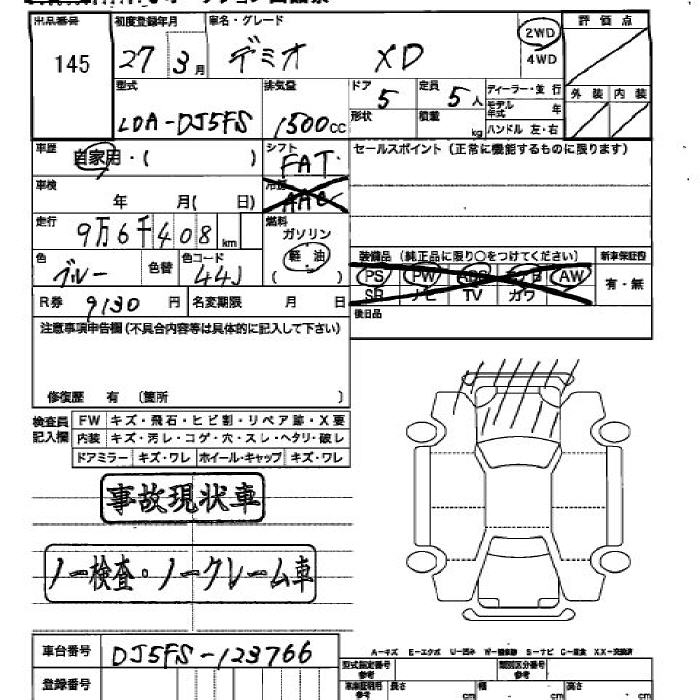 出品番号 初度登録年月 車名・グレード 2WD 評価点
145 27 3月 デミオ XD 4WD
型式 排気量 ドア 5 定員 5人 ディーラー・並行 外装 内装
LDA-DJ5FS 1500cc 形状 積載 kg モデル年式 年
ハンドル 左・右
車歴 自家用・( ) シフト FAT セールスポイント(正常に機能するものに限ります)
車検 年 月( 日) AAC
走行 9万6千408km 燃料
ガソリン
軽油
( )
色 ブルー 色替 色コード 44J
装備品(純正品に限り○をつけてください) 新車保証書
PS PW ABS AW 有・無
SR ナビ TV カワ
R券 9130円 名変期限 月 日 後日品
注意事項申告欄(不具合内容等は具体的に記入して下さい)
修復歴 有 〔箇所 〕
検査員記入欄 FW キズ・飛石・ヒビ割・リペア跡・X要
内装 キズ・汚レ・コゲ・穴・スレ・ヘタリ・破レ
ドアミラー キズ・ワレ ホイール・キャップ キズ・ワレ
事故現状車
ノー検査・ノークレーム車
車台番号 DJ5FS-123766
登録番号
A-キズ E-エクボ U-凹み S-サビ C-腐食 XX-交換済
型式指定番号 参考 類別区分番号 参考
参考 長さ cm 幅 cm 高さ cm